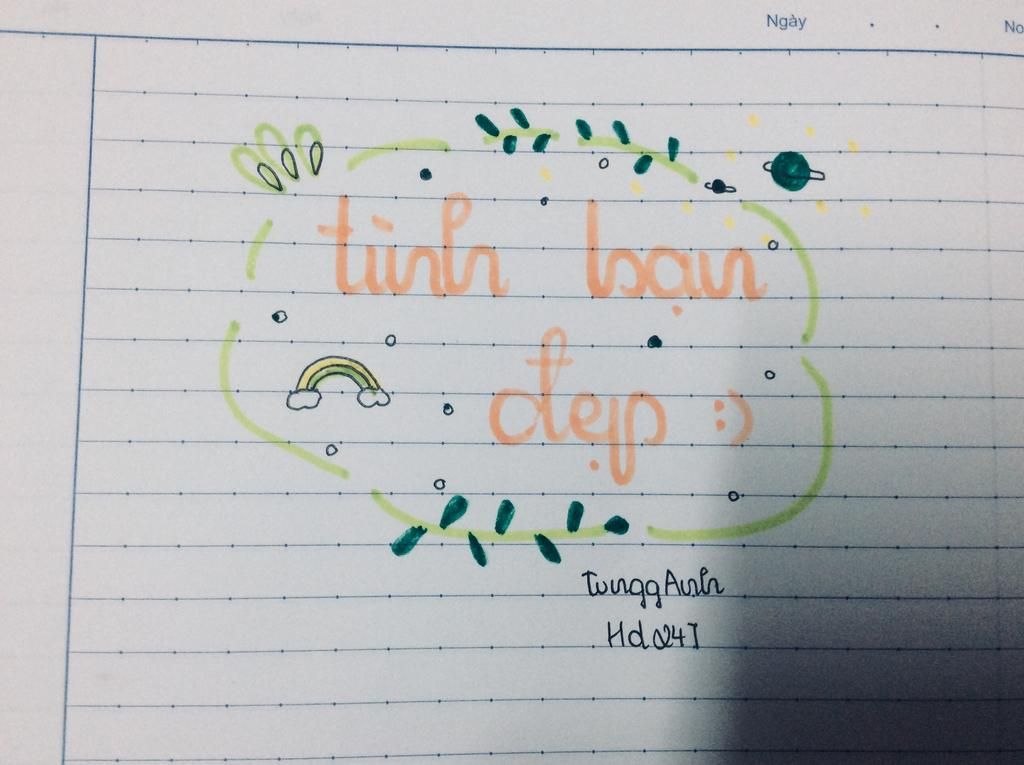 Ngày . . No
tình bạn
đẹp :)
TunggAnh
Hd 247